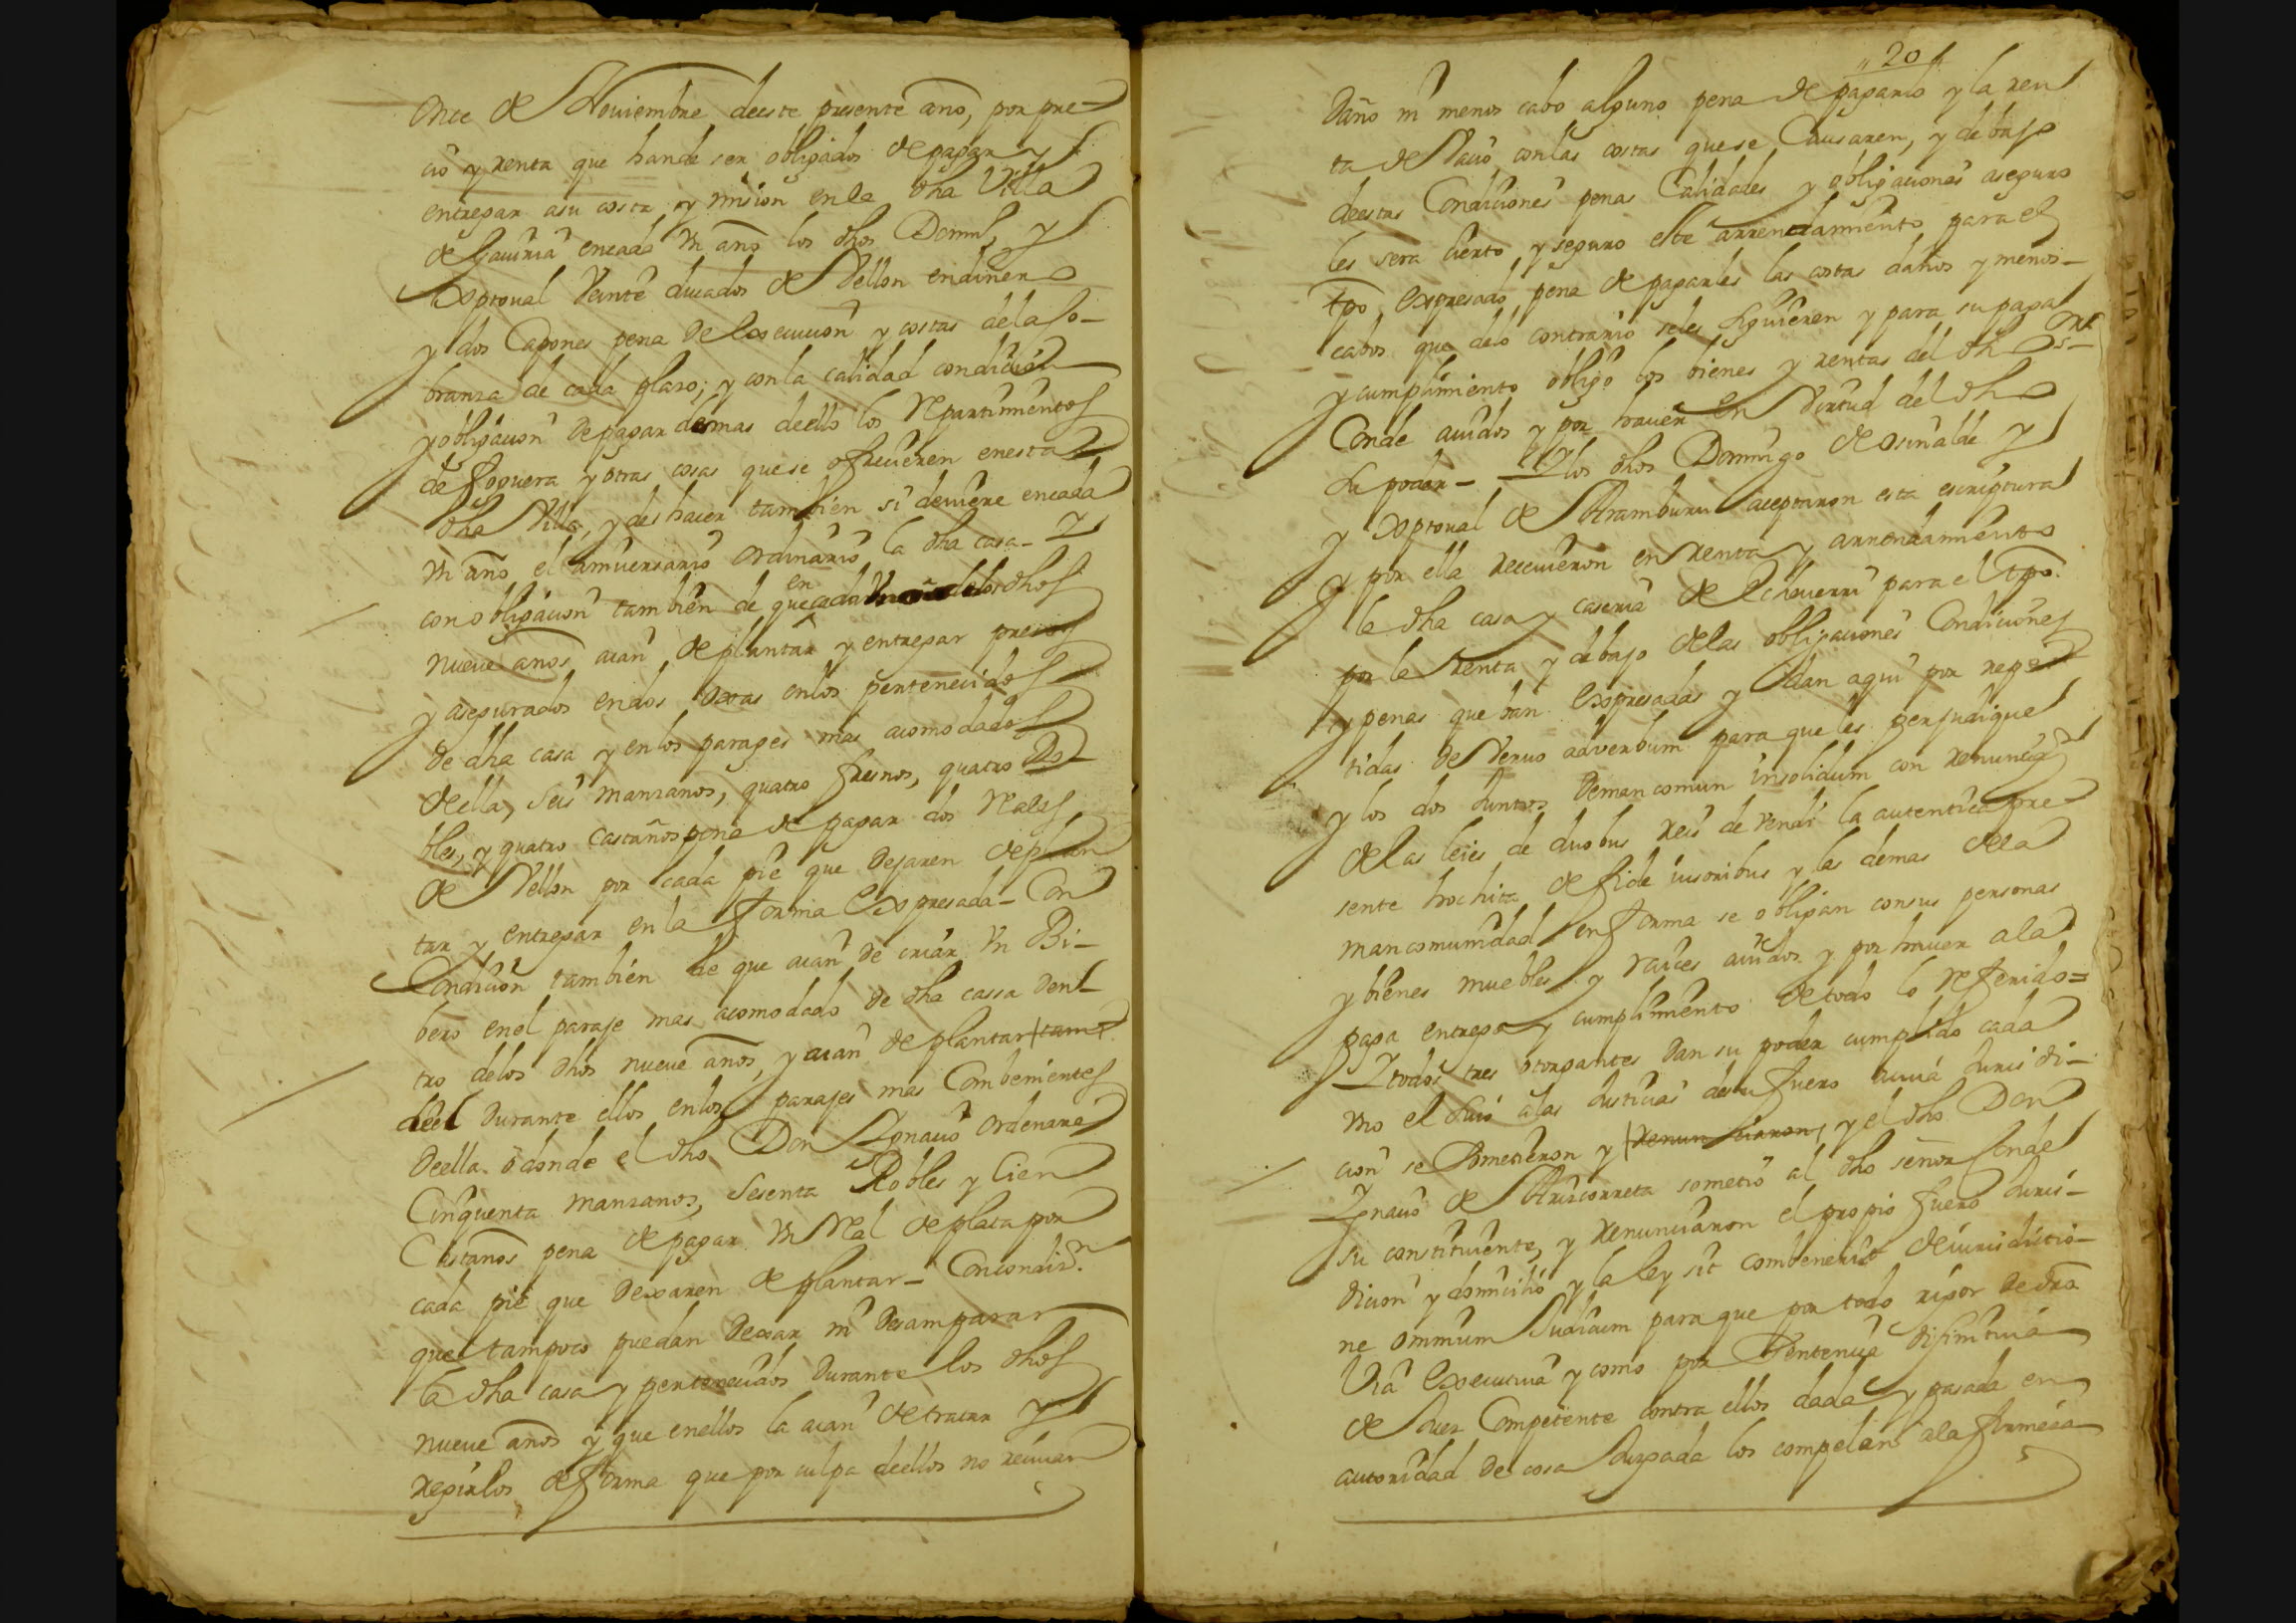 Once de Noviembre deeste presente año, por pre-
cio y renta que hande ser obligados depagar y
entregar asu costa y mision enla dha Villa
de Gauiria encada Vn año los dhos Domº, y
Xptoual Veinte ducados de Vellon endinero
y dos Capones pena de Execucion y costas dela co-
branza de cada plazo; y conla calidad condicion
y obligacion depagar demas deello los repartimientos
de foguera y otras cosas quese ofrecieren enesta
dha Villa, y deshacer tambien si deuiere encada
Vn año el aniuersario ordinario la dha casa- Y
con obligacion tambien de que en cada delos dhos
nueue años aian deplantar y entregar presos
y asegurados endos oxas enlos pertenecidos
de dha casa y enlos parages mas acomodados
deella, seis manzanos, quatro fresnos, quatro Ro-
bles, y quatro castaños pena de pagar dos reales
de Vellon por cada pie que dejaren deplan
tar y entregar en la forma Expresada- Con
Condicion tambien de que aian de criar Vn Bi-
bero enel paraje mas acomodado de dha cassa dent-
tro delos dhos nueue años, y aian deplantar tam
deel durante ellos enlos parajes mas Combenientes
deella o donde el dho Don Ignacio ordenare
Cinquenta manzanos, sesenta Robles y Cien
Castaños pena depagar Vn real deplata por
cada pie que dexaren deplantar- Concondizn
que tampoco puedan dexar ni desamparar
la dha casa y pertenecidos durante los dhos
nueue años y que enellos la aian detratar y
regirlos deforma que por culpa deellos no reciuan
20
Daño ni menos cabo alguno pena de pagarlo y la ren
ta de Vacio conlas costas quese Causaren, y debajo
deestas Condiciones penas Calidades y obligaciones aseguro
les sera cierto y seguro este arrendamiento para el
tpo, Expresado pena de pagarles las costas daños y menos-
cabos que delo contrario seles siguieren y para su paga
y cumplimiento obligo los bienes y rentas del dho Sr
Conde auidos y por hauer En Virtud del dho
su poder- Y los dhos Domingo de Osinalde y
y Xptoual de Aramburu aceptaron esta escriptura
y por ella reciuieron en renta y arrendamiento
la dha casa y caseria de Echeuerri para el tpo.
por la renta y debajo delas obligaciones Condiciones
y penas que ban Expresadas y dan aqui por repe
tidas de Veruo adverbum para queles perjudique
y los dos Juntos demancomun insolidum con renuncia
delas leies de duobus reis devendi la autentica pre
sente hochita de fide iusoribus y las demas dela
mancomunidad en forma se obligan consus personas
y bienes muebles y raices auidos y por hauer ala
paga entrega y cumplimiento detodo lo referido=
Y todos tres otorgantes dan su poder cumplido cada
vno el suio alas Justicias desu fuero a cuia Jurisdi-
cion se sometieron y renunciaron, y el dho Don
Ignacio de Arizcorreta sometio al dho señor Conde
su constituiente, y renunciaron el propio fuero Juris-
dicion y domicilio y la ley sit combenerit deiurisdictio-
ne omnium Judicum para que por todo rigor dedro
Via Executiua y como por Sentencia difinitiua
de Juez Competente contra ellos dada y pasada en
autoridad de cosa Juzgada los compelan ala firmeza